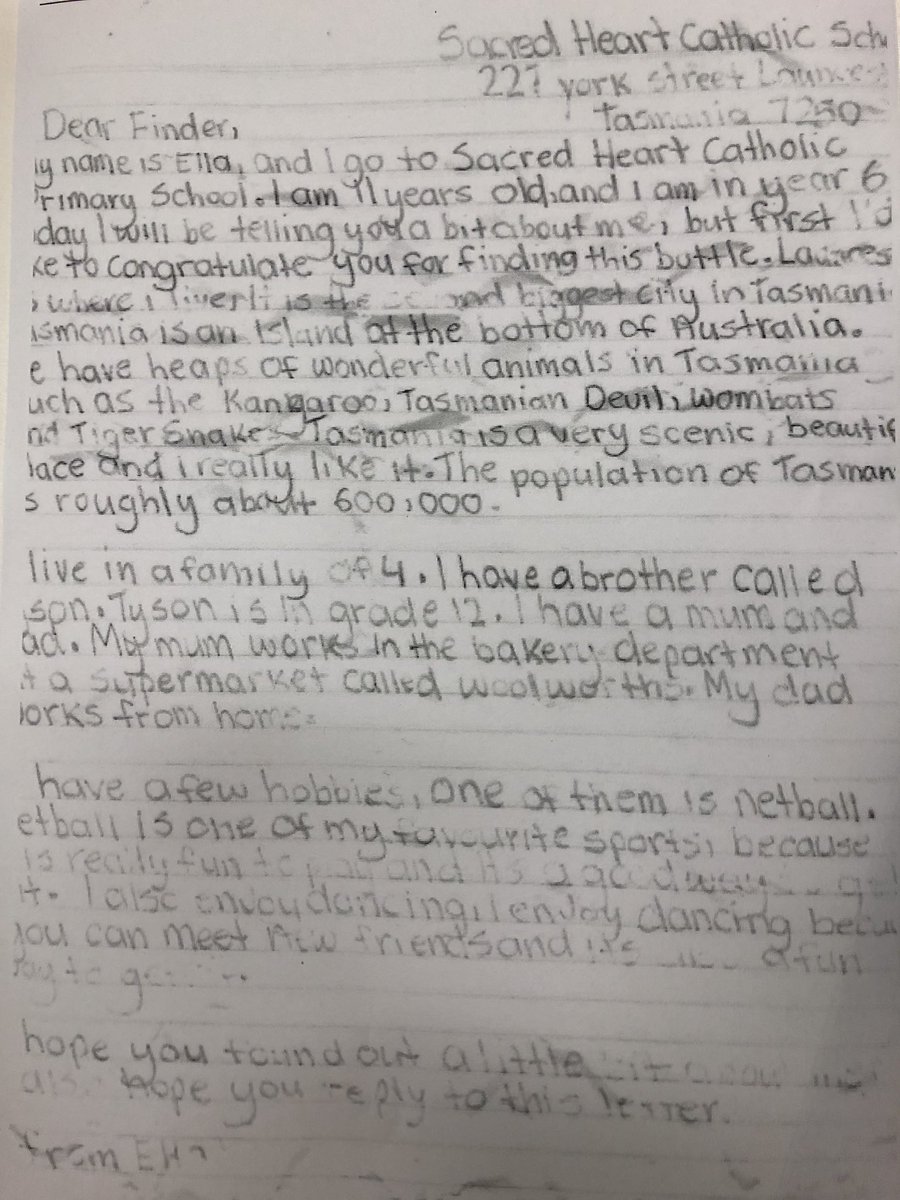 Sacred Heart Catholic Sch
227 york street
Tasmania 7250
Dear Finder,
y name is Ella, and I go to Sacred Heart Catholic
rimary School. I am 11 years old, and I am in year 6
day I will be telling you a bit about me, but first I'd
ke to congratulate you for finding this buttle.
, where i is the biggest city in Tasmani
smania is an Island at the bottom of Australia.
e have heaps of wonderful animals in Tasmania
uch as the Kangaroo, Tasmanian Devil, wombats
nd Tiger Snakes Tasmania is a very scenic, beautif
lace and i really like it. The population of Tasman
s roughly about 600,000.
live in a family of 4. I have a brother called
son. Tyson is in grade 12. I have a mum and
ad. My mum works in the bakery department
t a supermarket called woolworths. My dad
orks from home.
have a few hobbies, One of them is netball.
etball is one of my favourite sports, because
is really fun to and its a good
it. I also enjoy dancing, I enjoy dancing becau
you can meet new friends and its a fun
to
hope you found out a little
Hope you reply to this letter.
from Ella